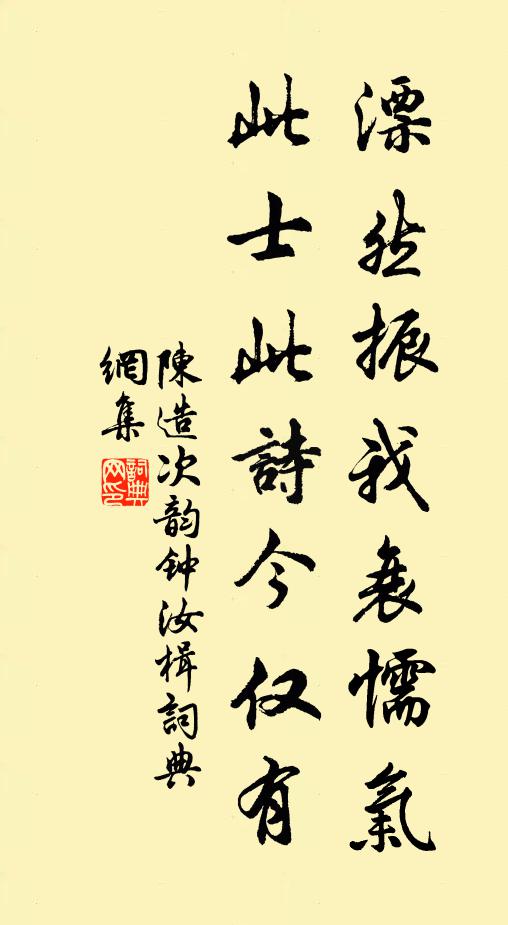 漂然振我衰懦氣
此士此詩今仅有
陳造次韵钟汝楫詞典
網集
詞典
网印